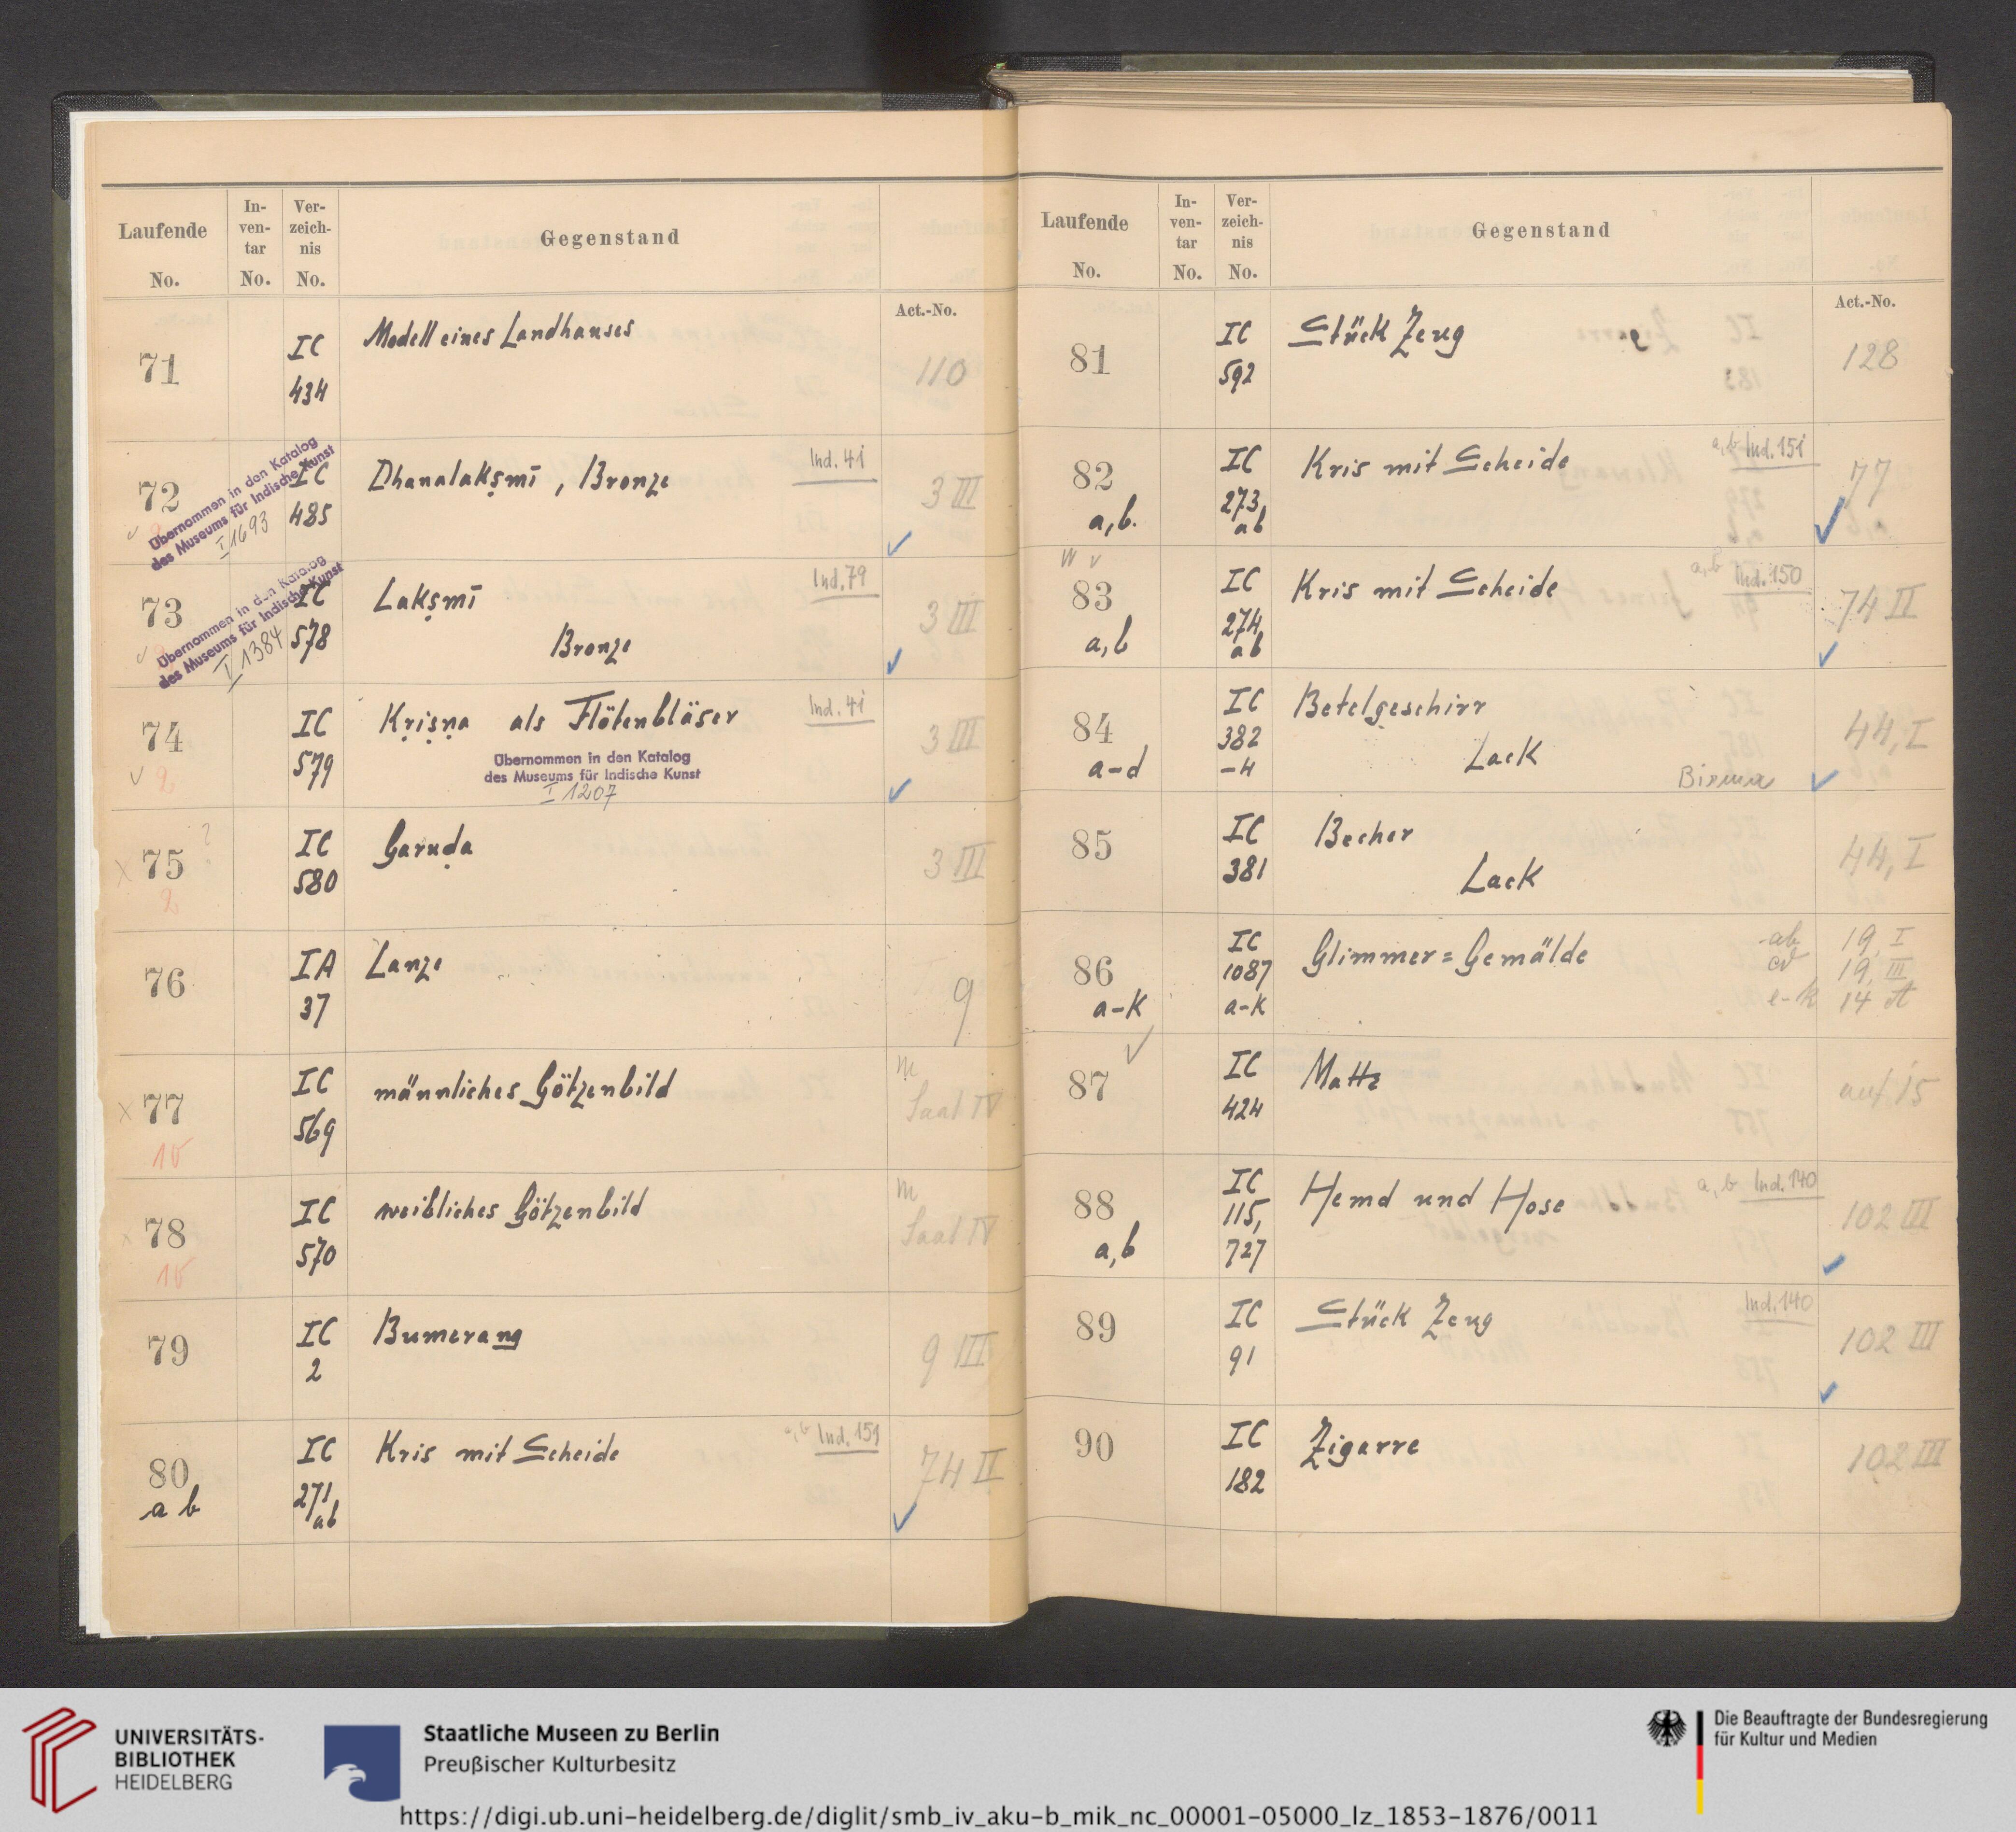 Laufende
No.
In-
ven-
tar
No.
Ver-
zeich-
nis
No.
Gegenstand
Act.-No.
71
IC
434
Modell eines Landhauses
110
72
IC
485
Dhanalakṣmī, Bronze
Ind. 41
3 III
Übernommen in den Katalog
des Museums für Indische Kunst
I 1693
73
IC
578
Lakṣmī
Bronze
Ind. 79
3 III
Übernommen in den Katalog
des Museums für Indische Kunst
I 1384
74
IC
579
Kṛiṣṇa als Flötenbläser
Ind. 41
3 III
Übernommen in den Katalog
des Museums für Indische Kunst
I 1207
75
?
IC
580
Garuḍa
3 III
76
IA
37
Lanze
9
77
10
IC
569
männliches Götzenbild
m
Saal IV
78
10
IC
570
weibliches Götzenbild
m
Saal IV
79
IC
2
Bumerang
9 III
80
a b
IC
271
ab
Kris mit Scheide
a, b Ind. 151
74 II
Laufende
No.
In-
ven-
tar
No.
Ver-
zeich-
nis
No.
Gegenstand
Act.-No.
81
IC
592
Stück Zeug
128
82
a, b.
IC
273,
ab
Kris mit Scheide
a, b Ind. 151
77
83
a, b
IC
274,
ab
Kris mit Scheide
a, b Ind. 150
74 II
84
a-d
IC
382
-4
Betelgeschirr
Lack
Birma
44, I
85
IC
381
Becher
Lack
44, I
86
a-k
IC
1087
a-k
Glimmer=Gemälde
ab 19, I
cd 19, III
e-k 14 A
87
IC
424
Matte
auf 15
88
a, b
IC
115,
727
Hemd und Hose
a, b Ind. 140
102 III
89
IC
91
Stück Zeug
Ind. 140
102 III
90
IC
182
Zigarre
102 III
UNIVERSITÄTS-
BIBLIOTHEK
HEIDELBERG
Staatliche Museen zu Berlin
Preußischer Kulturbesitz
Die Beauftragte der Bundesregierung
für Kultur und Medien
https://digi.ub.uni-heidelberg.de/diglit/smb_iv_aku-b_mik_nc_00001-05000_lz_1853-1876/0011